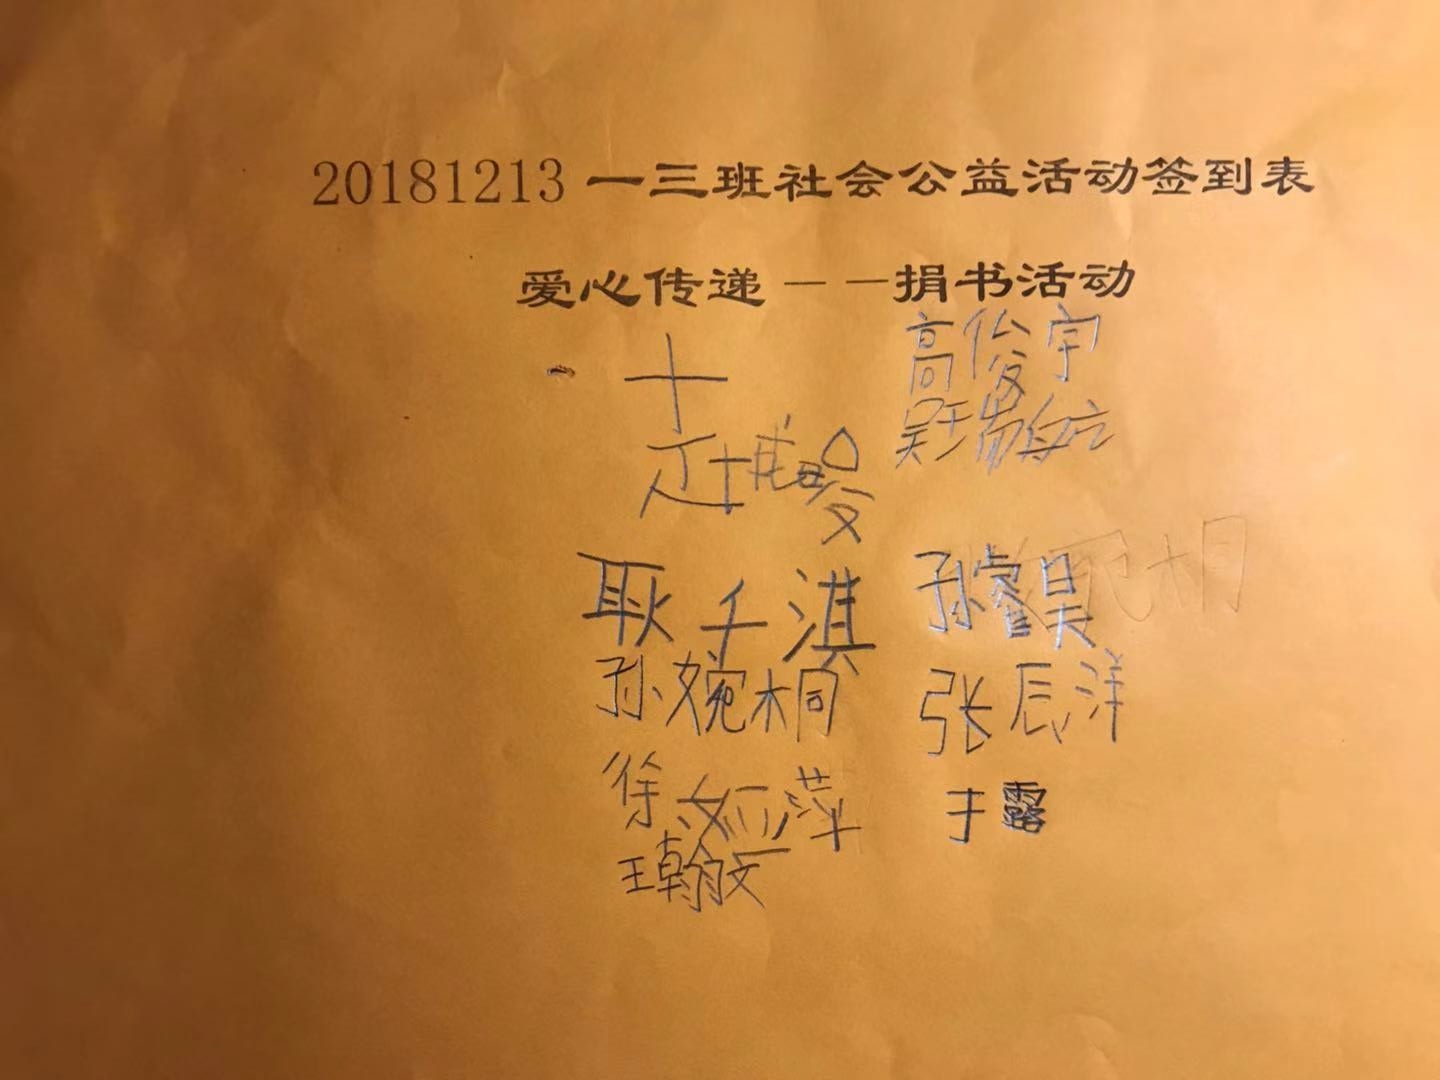 20181213 一三班社会公益活动签到表
爱心传递——捐书活动
高俊宇
吴
耿千淇
孙睿昊
孙婉桐
张辰洋
徐 萍
于露
王翰文